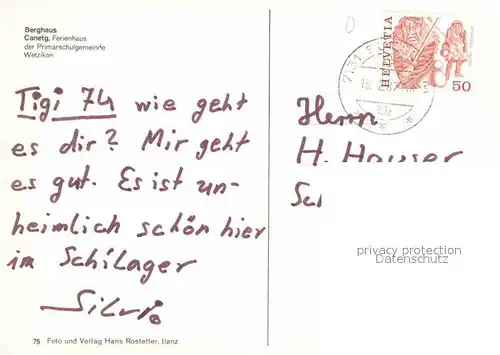 Berghaus
Canetg, Ferienhaus
der Primarschulgemeinde
Wetzikon
Tigi 74 wie geht
es dir? Mir geht
es gut. Es ist un-
heimlich schön hier
im Schilager
Silvio
75 Foto und Verlag Hans Rostetter, Ilanz
HELVETIA
50
Herrn
H. Hauser
privacy protection
Datenschutz